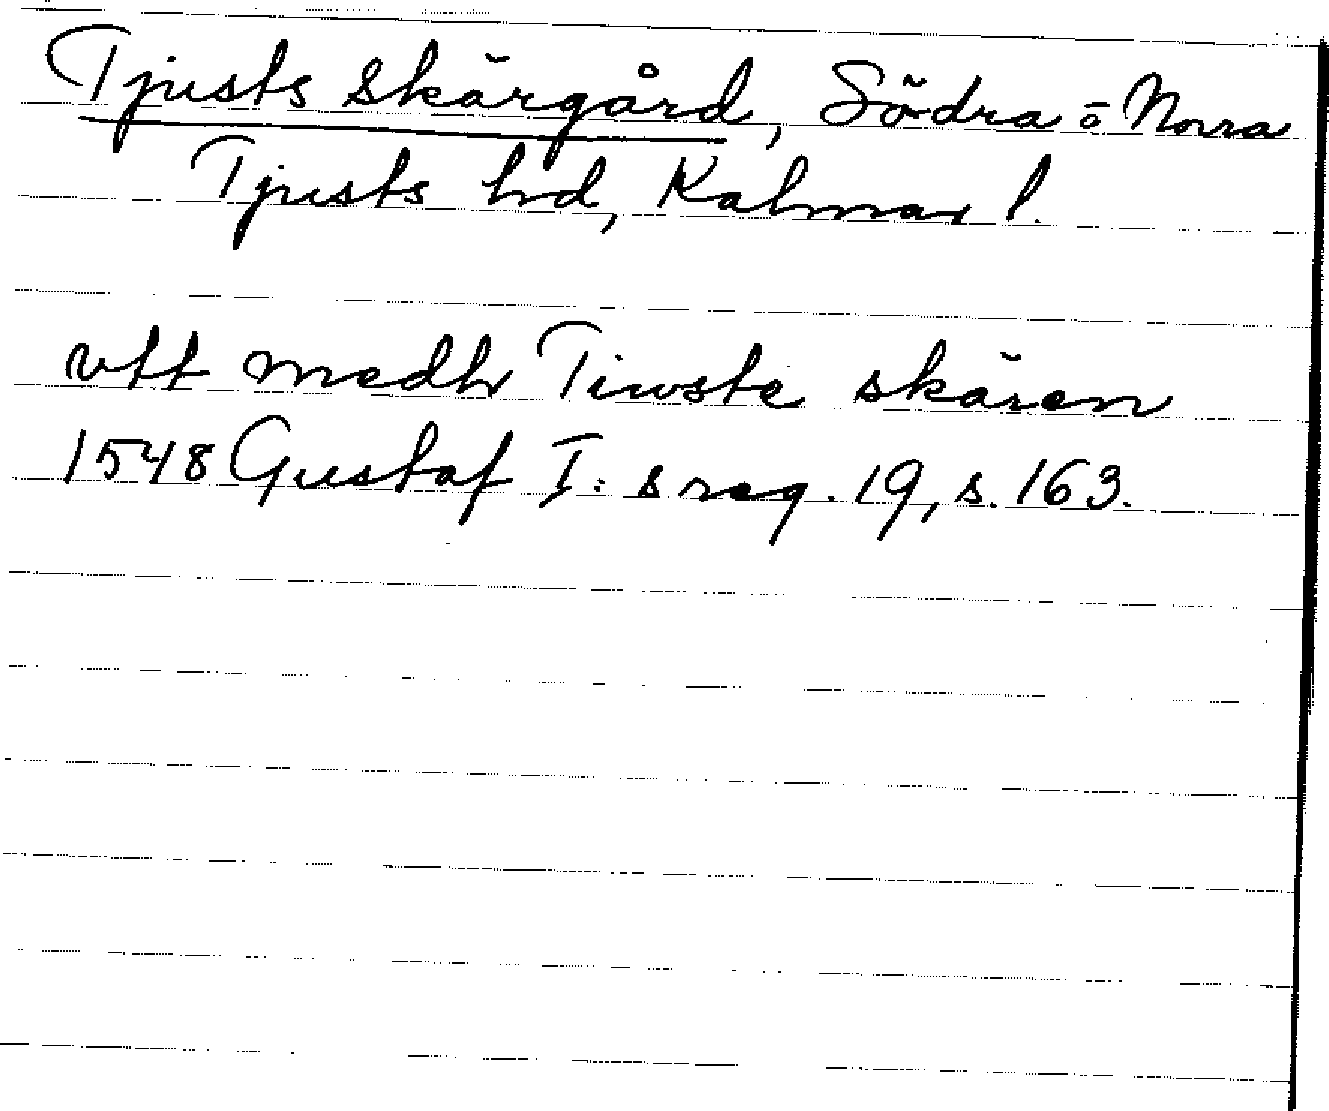 Tjusts skärgård, Södra o Norra
Tjusts hd, Kalmar l.
vtt medh Tiwste skären
1548 Gustaf I:s reg. 19, s. 163.